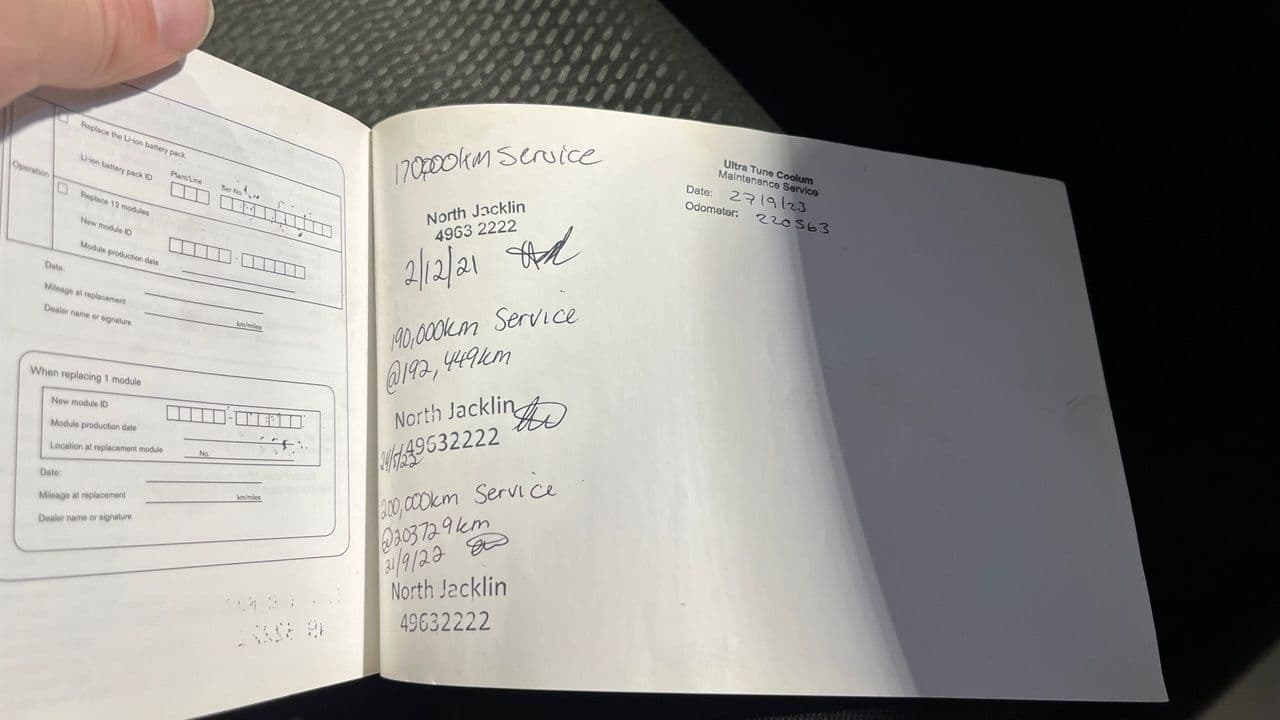 Operation
Replace the Li-ion battery pack
Li-ion battery pack ID
Plant/Line
Ser No.
Replace 12 modules
New module ID
Module production date
Date:
Mileage at replacement
km/miles
Dealer name or signature
When replacing 1 module
New module ID
Module production date
Location at replacement module
No.
Date:
Mileage at replacement
km/miles
Dealer name or signature
170,000km Service
North Jacklin
4963 2222
2/12/21
190,000km Service
@192,449km
North Jacklin
49632222
200,000km Service
@203729km
21/9/22
North Jacklin
49632222
Ultra Tune Coolum
Maintenance Service
Date: 27/9/23
Odometer: 220563